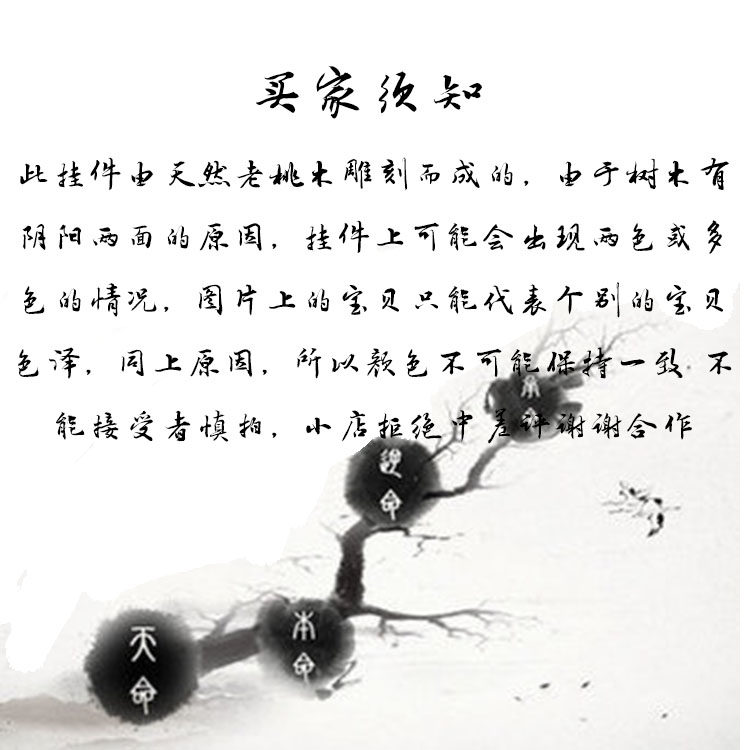 买家须知
此挂件由天然老桃木雕刻而成的，由于树木有
阴阳两面的原因，挂件上可能会出现两色或多
色的情况，图片上的宝贝只能代表个别的宝贝
色泽，同上原因，所以颜色不可能保持一致 不
能接受者慎拍，小店拒绝中差评谢谢合作
本
命
天
命
本
命